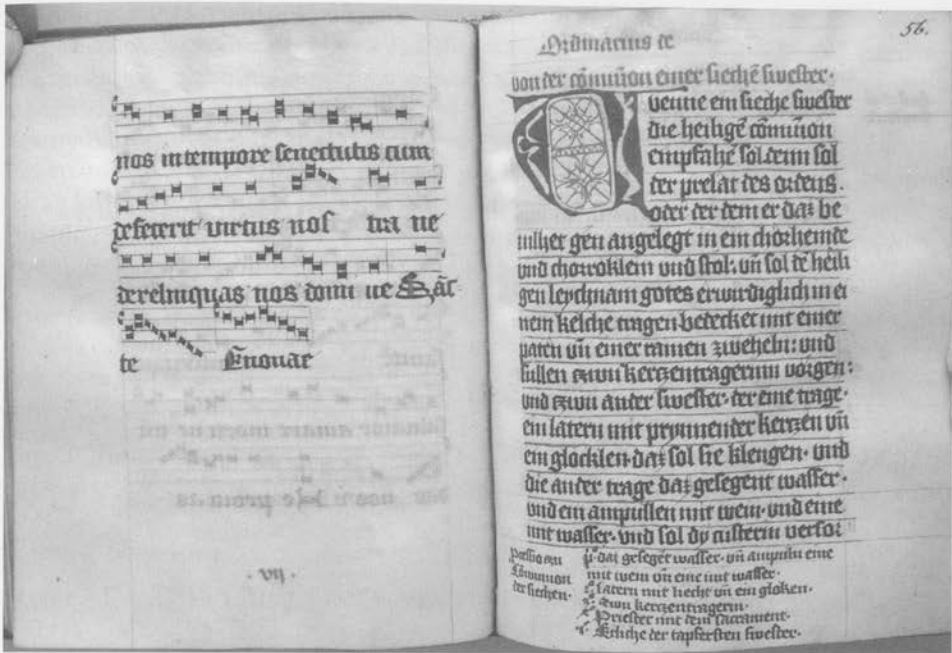 nos in tempore senectutis cum
defecerit virtus nos tra ne
derelinquas nos domi ne Sāc
te Euouae
· vij ·
56.
Ordinarius de
von der cōmūion einer siechē swester·
Wenne ein sieche swester
die heiligē cōmūion
empfahē sol denn sol
der prelat des ordens.
oder der dem er daz be
uilhet gen angelegt in ein chorhemde
vnd chorroklein vnd stol· vn̄ sol dē heili
gen leychnam gotes erwirdiglich in ei
nem kelche tragen bedecket mit einer
paten vn̄ einer rainen zweheln: vnd
sullen zwu kerczentragerinn vorgen:
vnd zwu ander swester· der eine trage·
ein latern mit prynnender kerczen vn̄
ein glocklen· daz sol sie klengen· vnd
die ander trage daz gesegent wasser·
vnd ein ampullen mit wein· vnd eine
mit wasser· vnd sol dy custerin versor
cōmunion
der siechen·
daz gesegēt wasser· vn̄ ampulln eine
mit wein vn̄ eine mit wasser·
latern mit liecht vn̄ ein gloken·
Zwu kerczentragerin·
Priester mit dem sacrament·
Etliche der tapfersten swester·